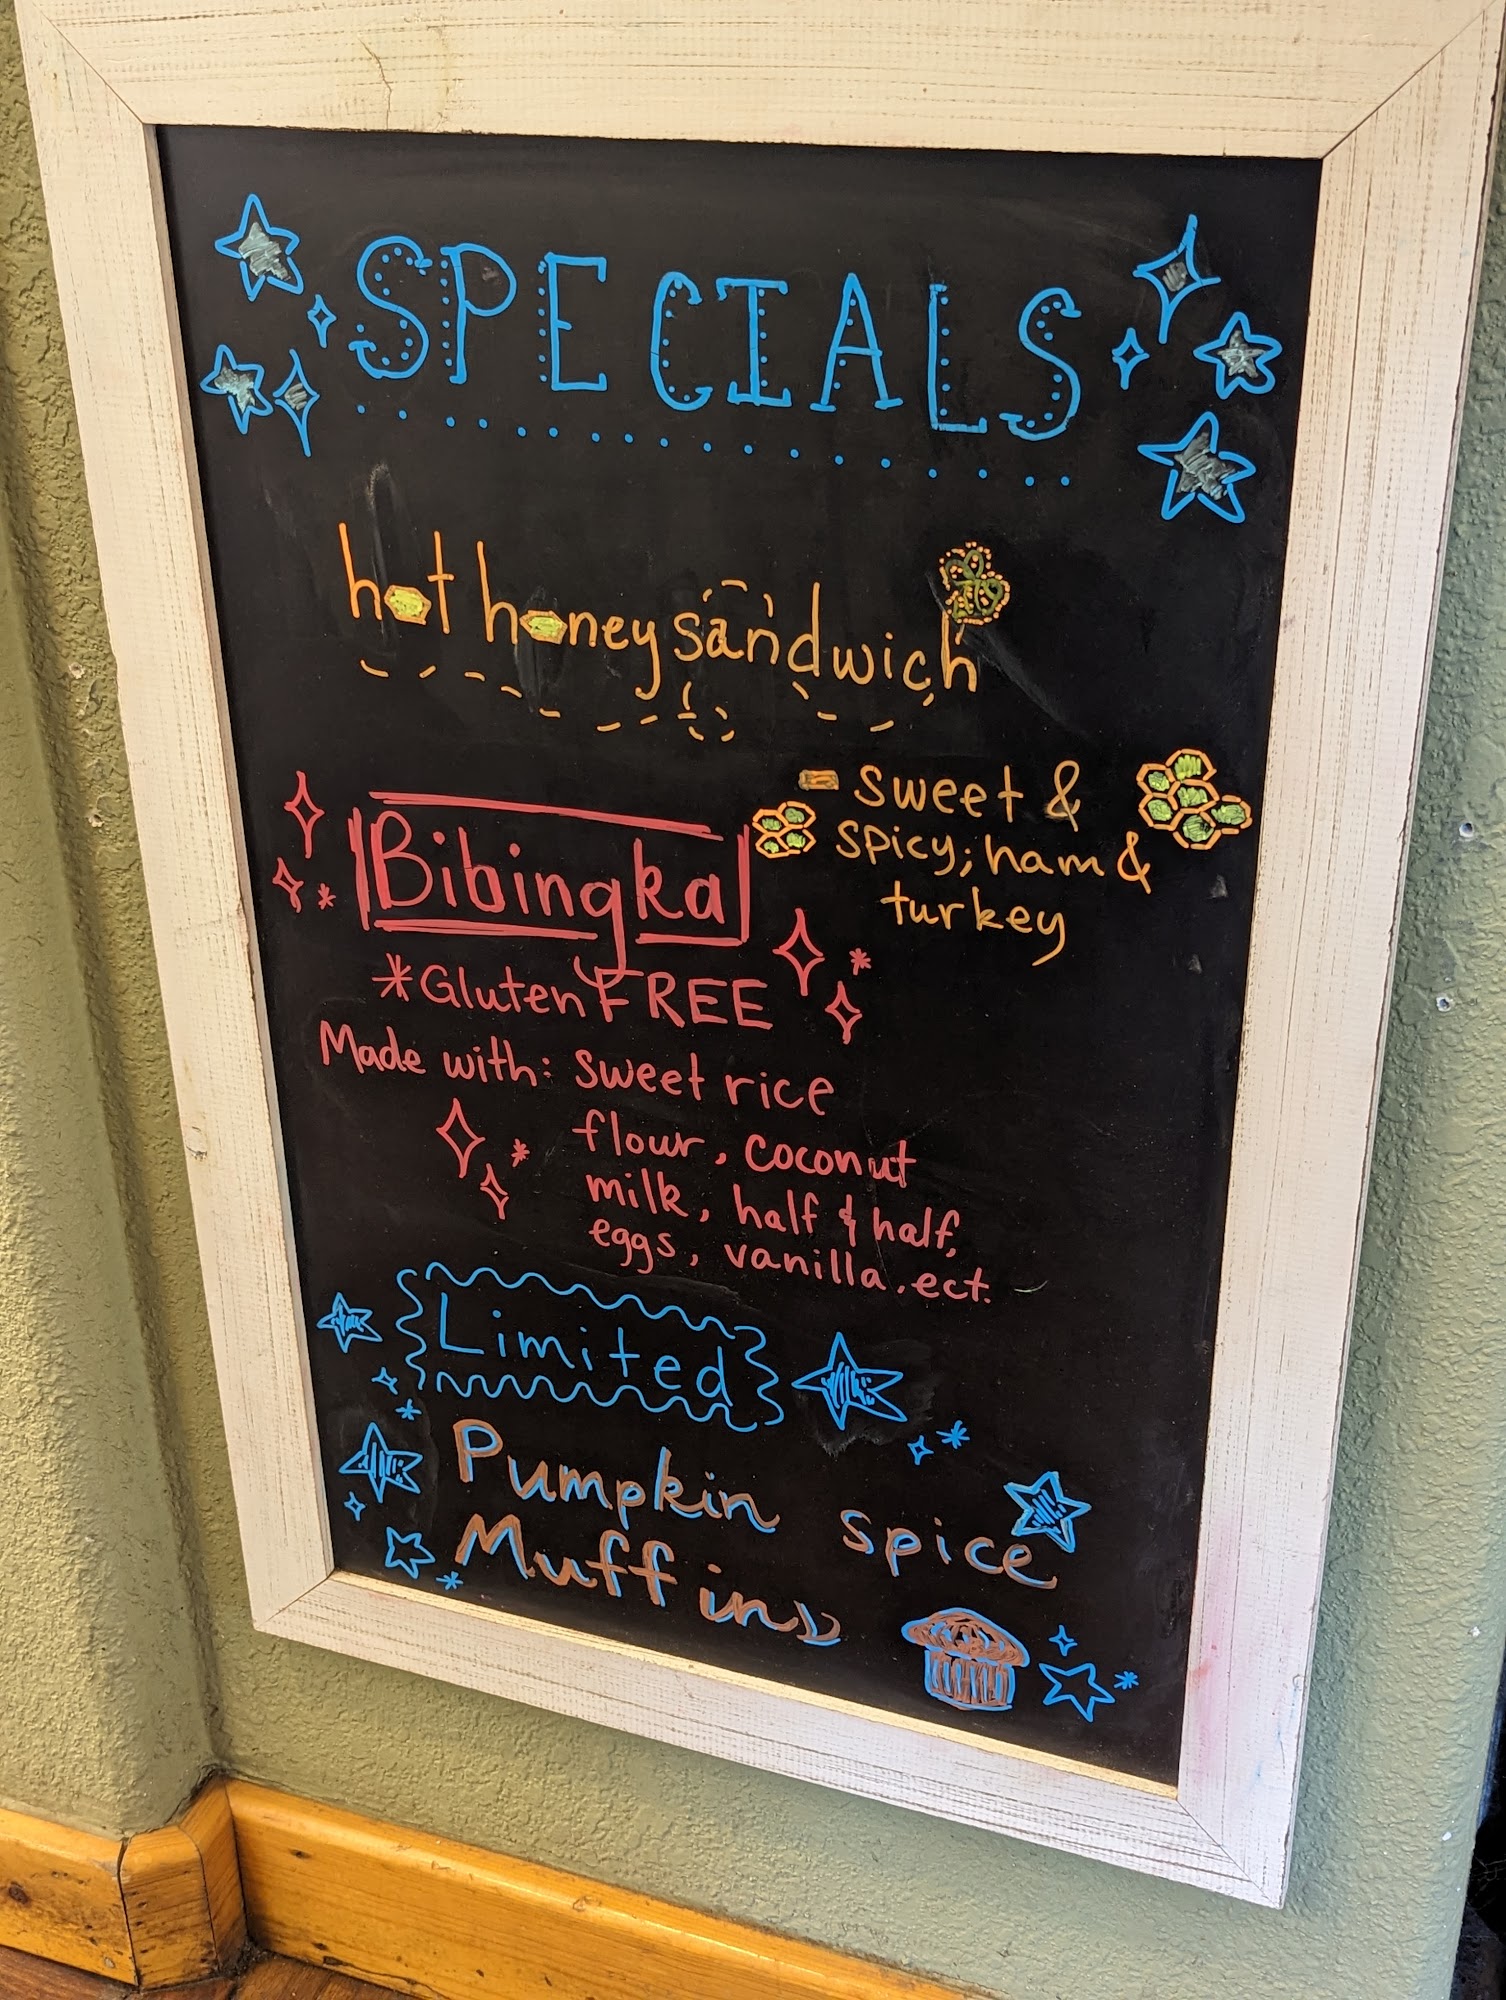 SPECIALS
hot honey sandwich
- sweet &
spicy; ham &
turkey
Bibingka
*Gluten FREE
Made with: sweet rice
flour, coconut
milk, half & half,
eggs, vanilla, ect.
Limited
Pumpkin spice
Muffins